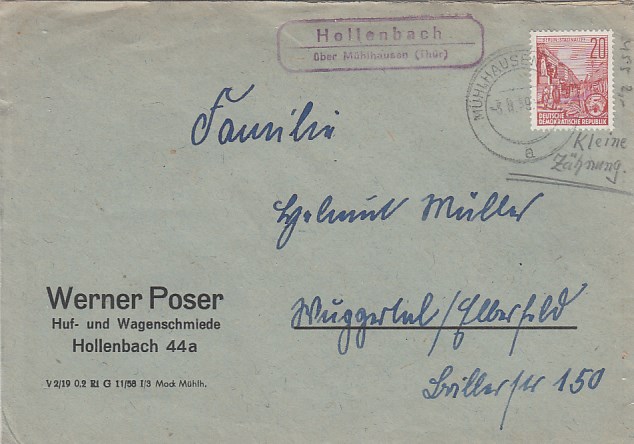 Hollenbach
über Mühlhausen (Thür)
MÜHLHAUSEN
a
20
DEUTSCHE
DEMOKRATISCHE REPUBLIK
Kleine
Zähnung.
Familie
Helmut Müller
Wuppertal/Elberfeld
Brillerstr 150
Werner Poser
Huf- und Wagenschmiede
Hollenbach 44a
V 2/19 0,2 R1 G 11/58 I/3 Mock Mühlh.